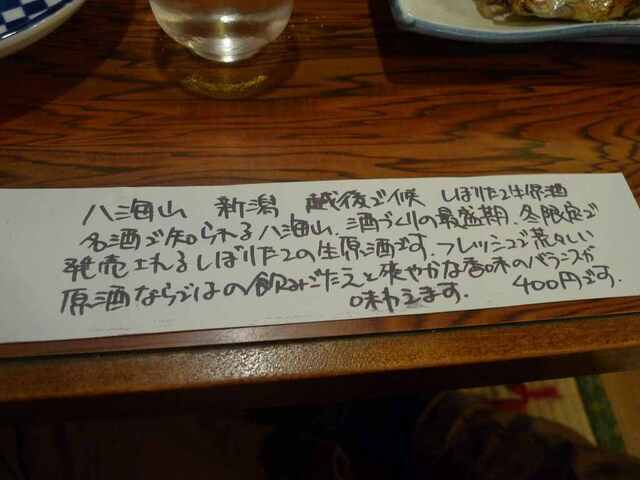 八海山 新潟 越後で候 しぼりたて生原酒
名酒で知られる八海山、酒づくりの最盛期、冬限定で
発売されるしぼりたての生原酒です。フレッシュで荒々しい
原酒ならではの飲みごたえと爽やかな香味のバランスが
味わえます。 400円です。